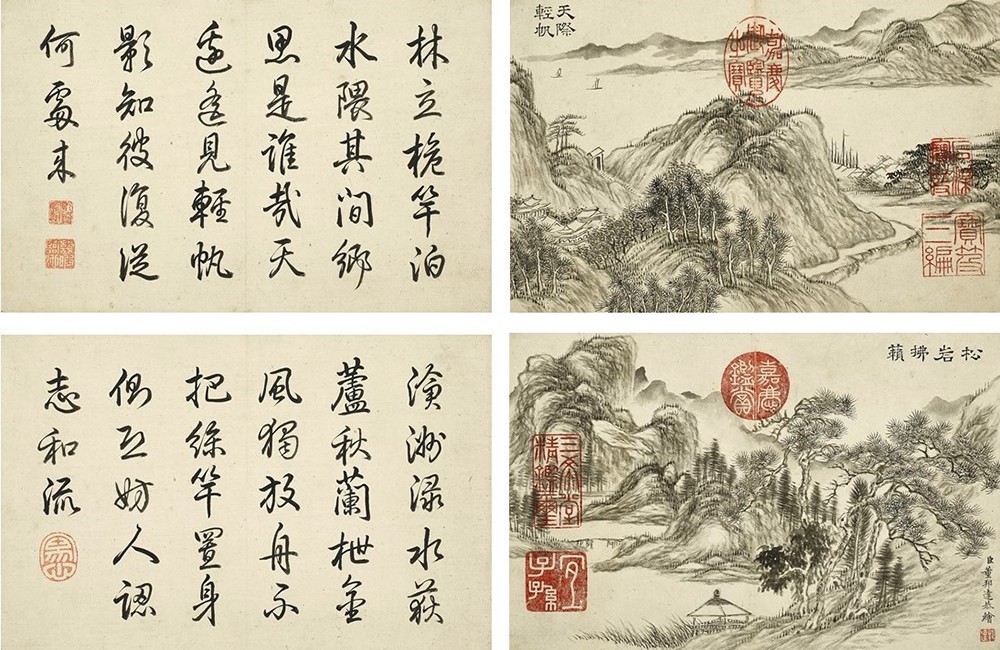 林立桅竿泊
水隈其間鄉
思是誰哉天
邊遙見輕帆
影知彼復從
何處來
天際
輕帆
嘉慶
御覽
之寶
石渠
寶笈
寶笈
三編
洲淥水荻
蘆秋蘭枻金
風獨放舟不
把綸竿置身
側妨人認
志和流
松岩拂籟
嘉慶
鑑賞
三希堂
精鑑璽
宜
子孫
臣董邦達恭繪